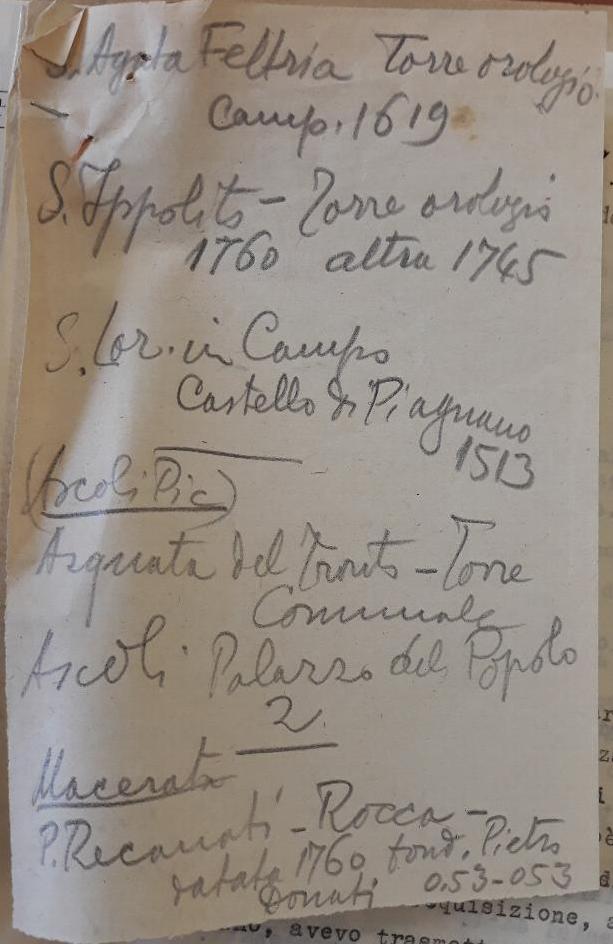 S. Agata Feltria Torre orologio.
Camp. 1619
S. Ippolito - Torre orologio
1760 altra 1745
S. Lor. in Campo
Castello di Piagnano
1513
(Ascoli Pic)
Arquata del Tronto - Torre
Comunale
Ascoli Palazzo del Popolo
2
Macerata
P. Recanati - Rocca -
datata 1760, fond. Pietro
Donati 0.53-053
quisizione, a
avevo